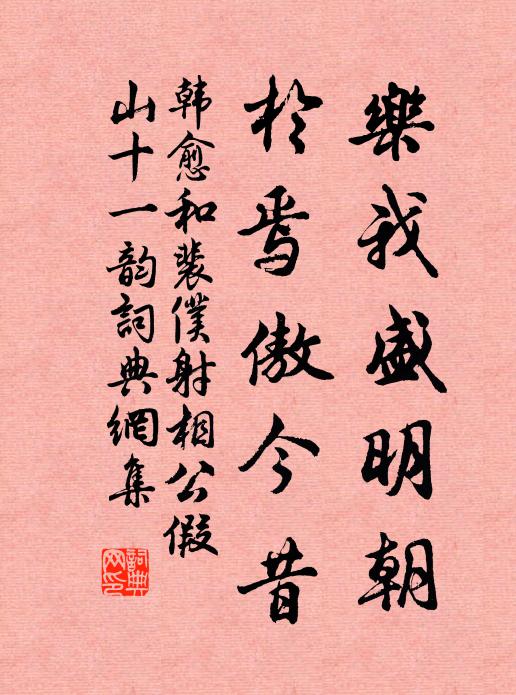 樂我盛明朝
於焉傲今昔
韩愈和裴僕射相公假
山十一韵詞典網集
詞典网印